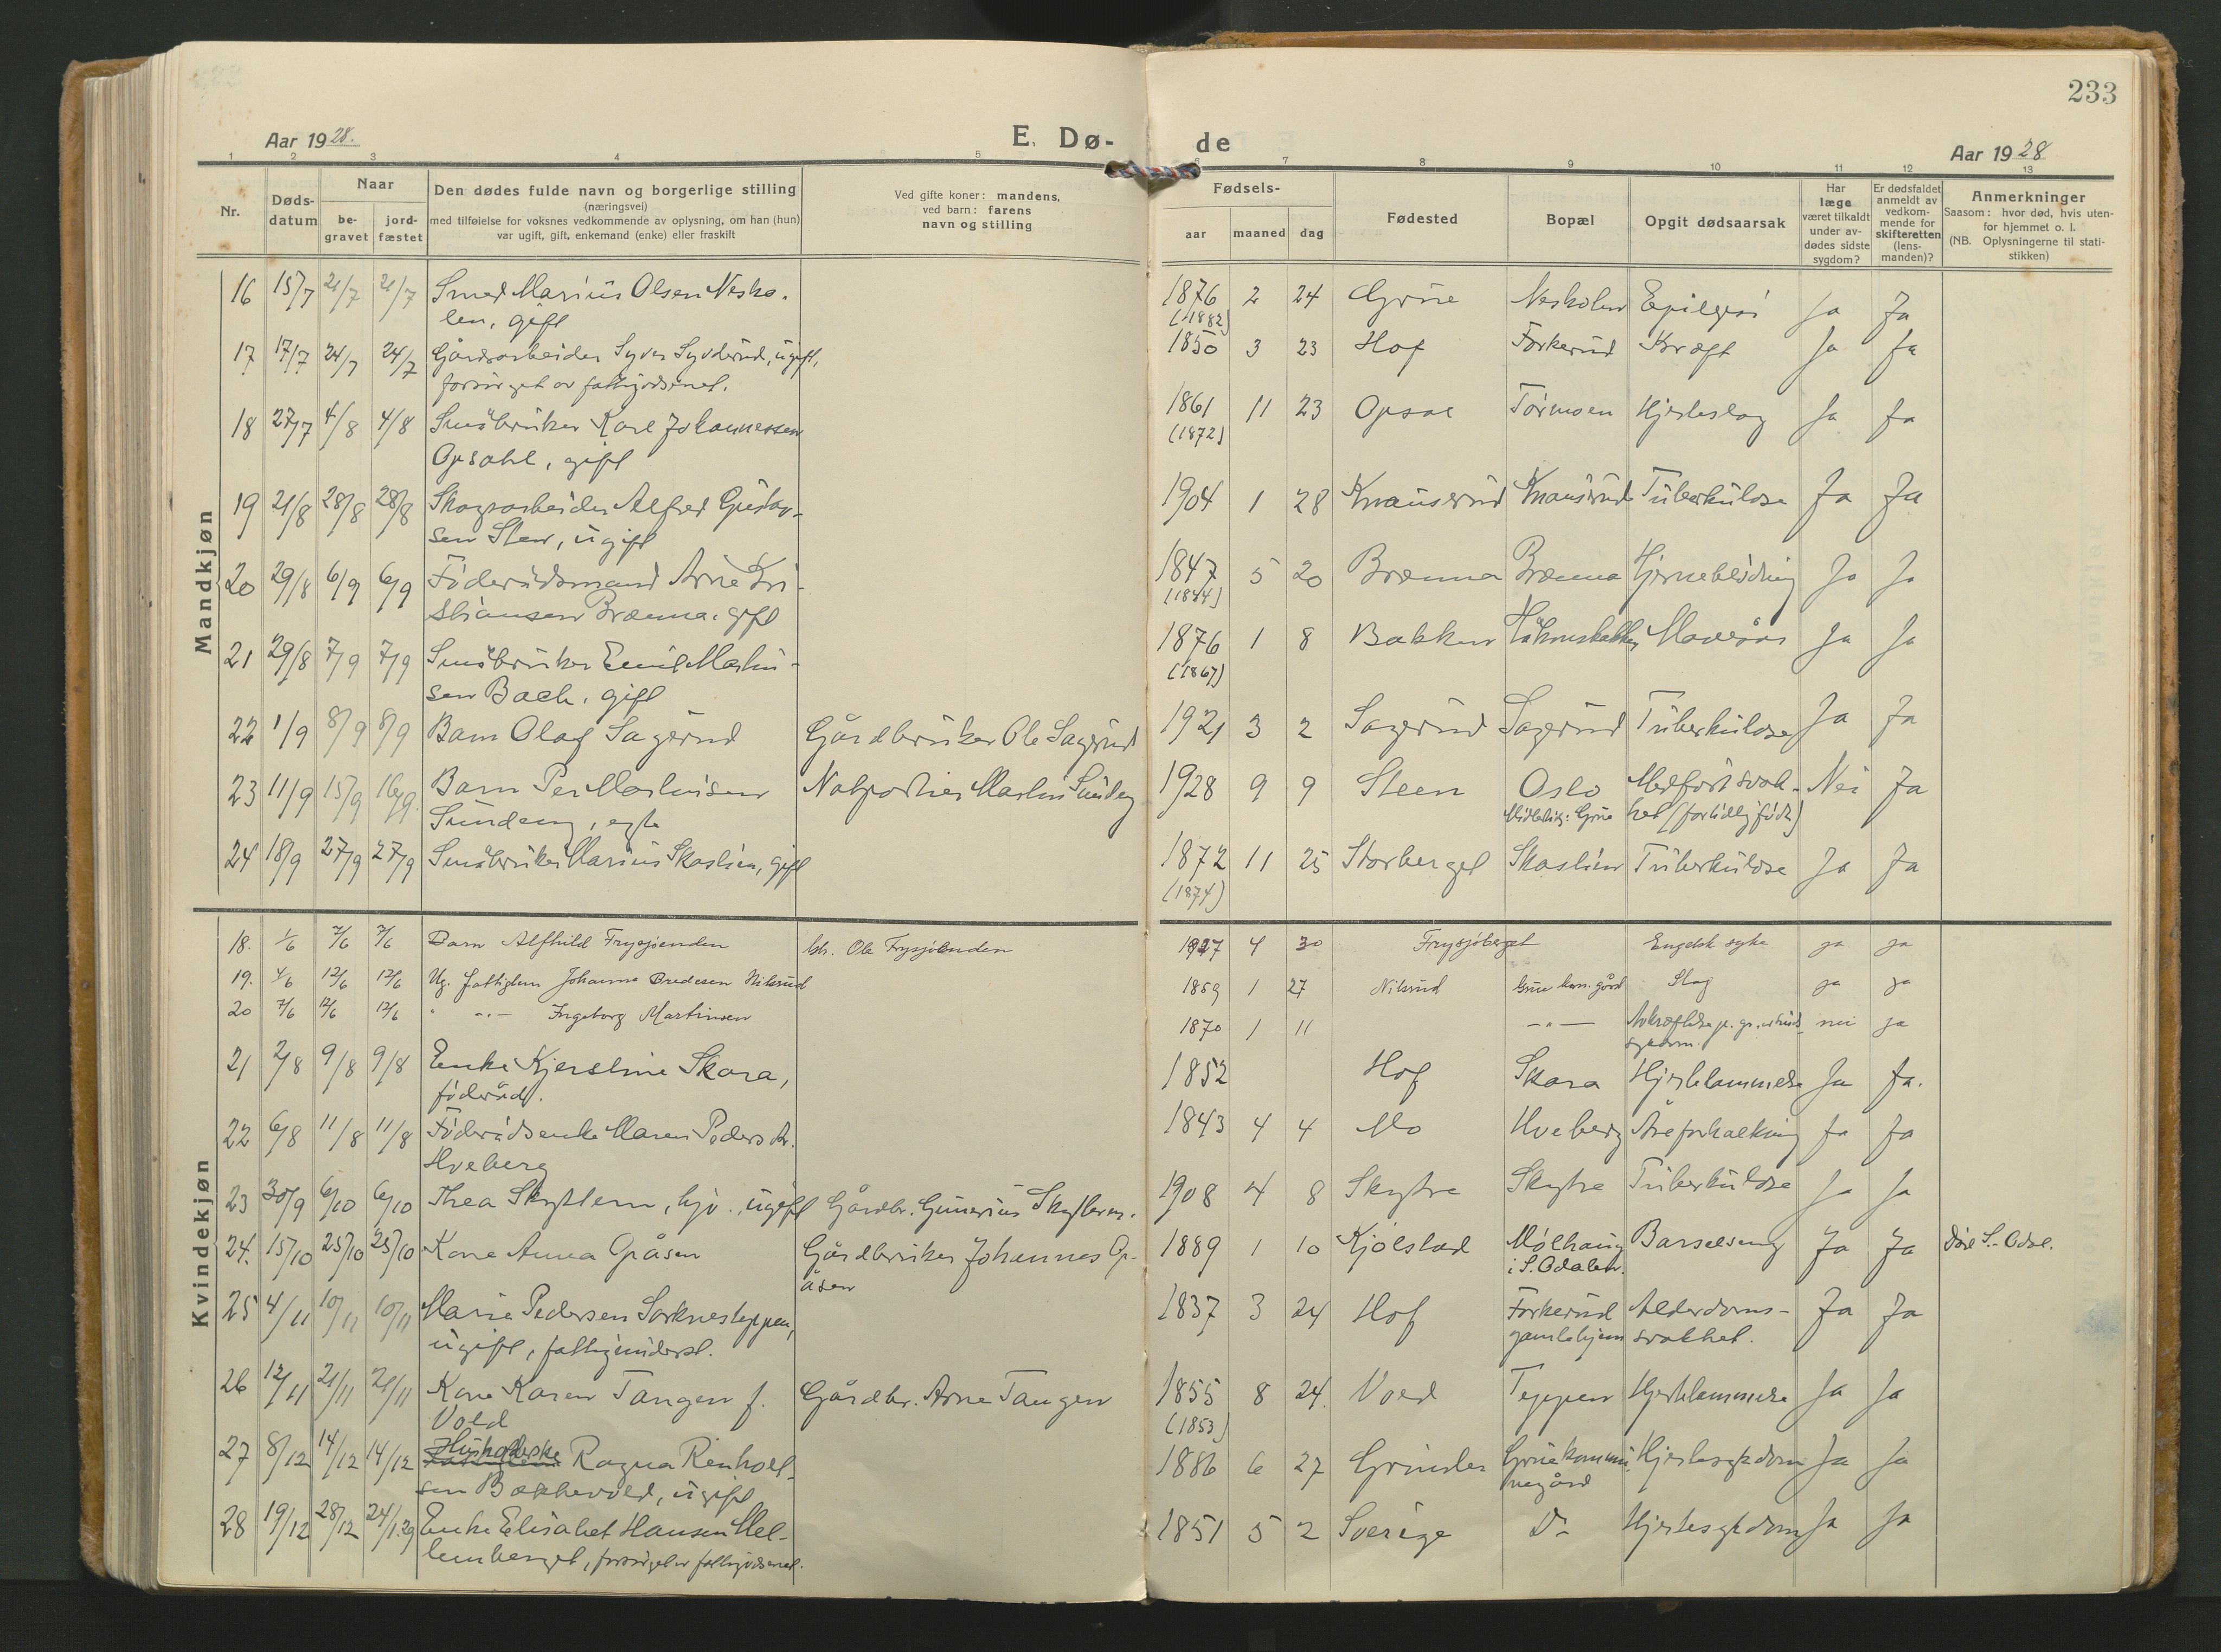 233
Aar 1928.
E. Dø-
de
Aar 1928
1 2 3 4 5 6 7 8 9 10 11 12 13
Nr.
Døds-
datum
Naar
be-
gravet
jord-
fæstet
Den dødes fulde navn og borgerlige stilling
(næringsvei)
med tilføielse for voksnes vedkommende av oplysning, om han (hun)
var ugift, gift, enkemand (enke) eller fraskilt
Ved gifte koner: mandens,
ved barn: farens
navn og stilling
Fødsels-
aar maaned dag
Fødested
Bopæl
Opgit dødsaarsak
Har
læge
været tilkaldt
under av-
dødes sidste
sygdom?
Er dødsfaldet
anmeldt av
vedkom-
mende for
skifteretten
(lens-
manden)?
Anmerkninger
Saasom: hvor død, hvis uten-
for hjemmet o. l.
(NB. Oplysningerne til stati-
stikken)
Mandkjøn
16 15/7 21/7 21/7 Smed Marius Olsen Nesho- 1876 2 24 Grue Nesholen Epilepsi Ja Ja
len, gift (1882)
17 17/7 24/7 24/7 Gårdsarbeider Syver Syverud, ugift, 1850 3 23 Hof Forkerud Kræft Ja Ja
forsørget av fattigvæsenet.
18 27/7 4/8 4/8 Småbruker Karl Johannessen 1861 11 23 Opsal Tørmoen Hjerteslag Ja Ja
Opsahl, gift (1872)
19 21/8 28/8 28/8 Skogsarbeider Alfred Gustav- 1904 1 28 Knauserud Knauserud Tuberkulose Ja Ja
sen Sten, ugift
20 29/8 6/9 6/9 Föderådsmand Arne Kri- 1847 5 20 Brænna Brænna Hjerneblödning Ja Ja
stiansen Brænna. gift (1844)
21 29/8 7/9 7/9 Småbruker Emil Martin- 1876 1 8 Bakken Mavesår Ja Ja
sen Bach, gift (1867)
22 1/9 8/9 8/9 Barn Olaf Sagerud Gårdbruker Ole Sagerud 1921 3 2 Sagerud Sagerud Tuberkulose Ja Ja
23 11/9 15/9 16/9. Barn Per Martinsen Natportier Martin Sundeng 1928 9 9 Steen Oslo Medfört svak- Nei Ja
Sundeng, egte Midlertidig: Grue het (for tidlig födt)
24 18/9 27/9 27/9 Småbruker Marius Skaslien, gift 1872 11 25 Storberget Skaslien Tuberkulose Ja Ja
(1874)
Kvindekjøn
18. 1/6 7/6 7/6 Barn Alfhild Frysjøenden br. Ole Frysjøenden 1927 4 30 Frysjøberget Engelsk syke ja ja
19. 4/6 12/6 12/6 Ug. fattiglem Johanne Bredesen Nilsrud 1859 1 27 Nilsrud Grue kom. gård Slag ja ja
20 7/6 12/6 12/6 " -"- Ingeborg Martinsen 1870 1 11 -"- nei ja
sykdom.
21 2/8 9/8 9/8 Enke Kjerstine Skara, 1852 Hof Skara Hjertelammelse Ja Ja.
föderåd.
22 6/8 11/8 11/8 Föderådsenke Maren Pedersdr. 1843 4 4 Mo Hveberg Åreforkalkning Ja Ja
Hveberg
23 30/9 6/10 6/10 Thea Skyttern, hjv., ugift Gårdbr. Gunerius Skyttern. 1908 4 8 Skytra Skytra Tuberkulose Ja Ja
24. 15/10 25/10 25/10 Kone Anna Opåsen Gårdbruker Johannes Op- 1889 1 10 Kjölstad Mölhaug Barselseng Ja Ja död S.-Odal.
åsen i S. Odalen.
25 4/11 10/11 10/11 Marie Pedersen Sorknesteppen, 1837 3 24 Hof Forkerud Alderdoms- Ja Ja
ugift, fattigunderst. gamlehjem svakhet.
26 12/11 21/11 21/11 Kone Karen Tangen f. Gårdbr. Arne Tangen 1855 8 24 Vold Teppen Hjertelammelse Ja Ja
Vold (1853)
27 8/12 14/12 14/12 Husholderske Ragna Renhold- 1886 6 27 Grinder Grue kommu- Hjertesykdom Ja Ja
sen Bækkevold, ugift negård
28 19/12 28/12 24/1.29 Enke Elisabet Hansen Mel- 1851 5 2 Sverige Do Hjertesykdom Ja Ja
lemberget, forsørget av fattigvæsenet.